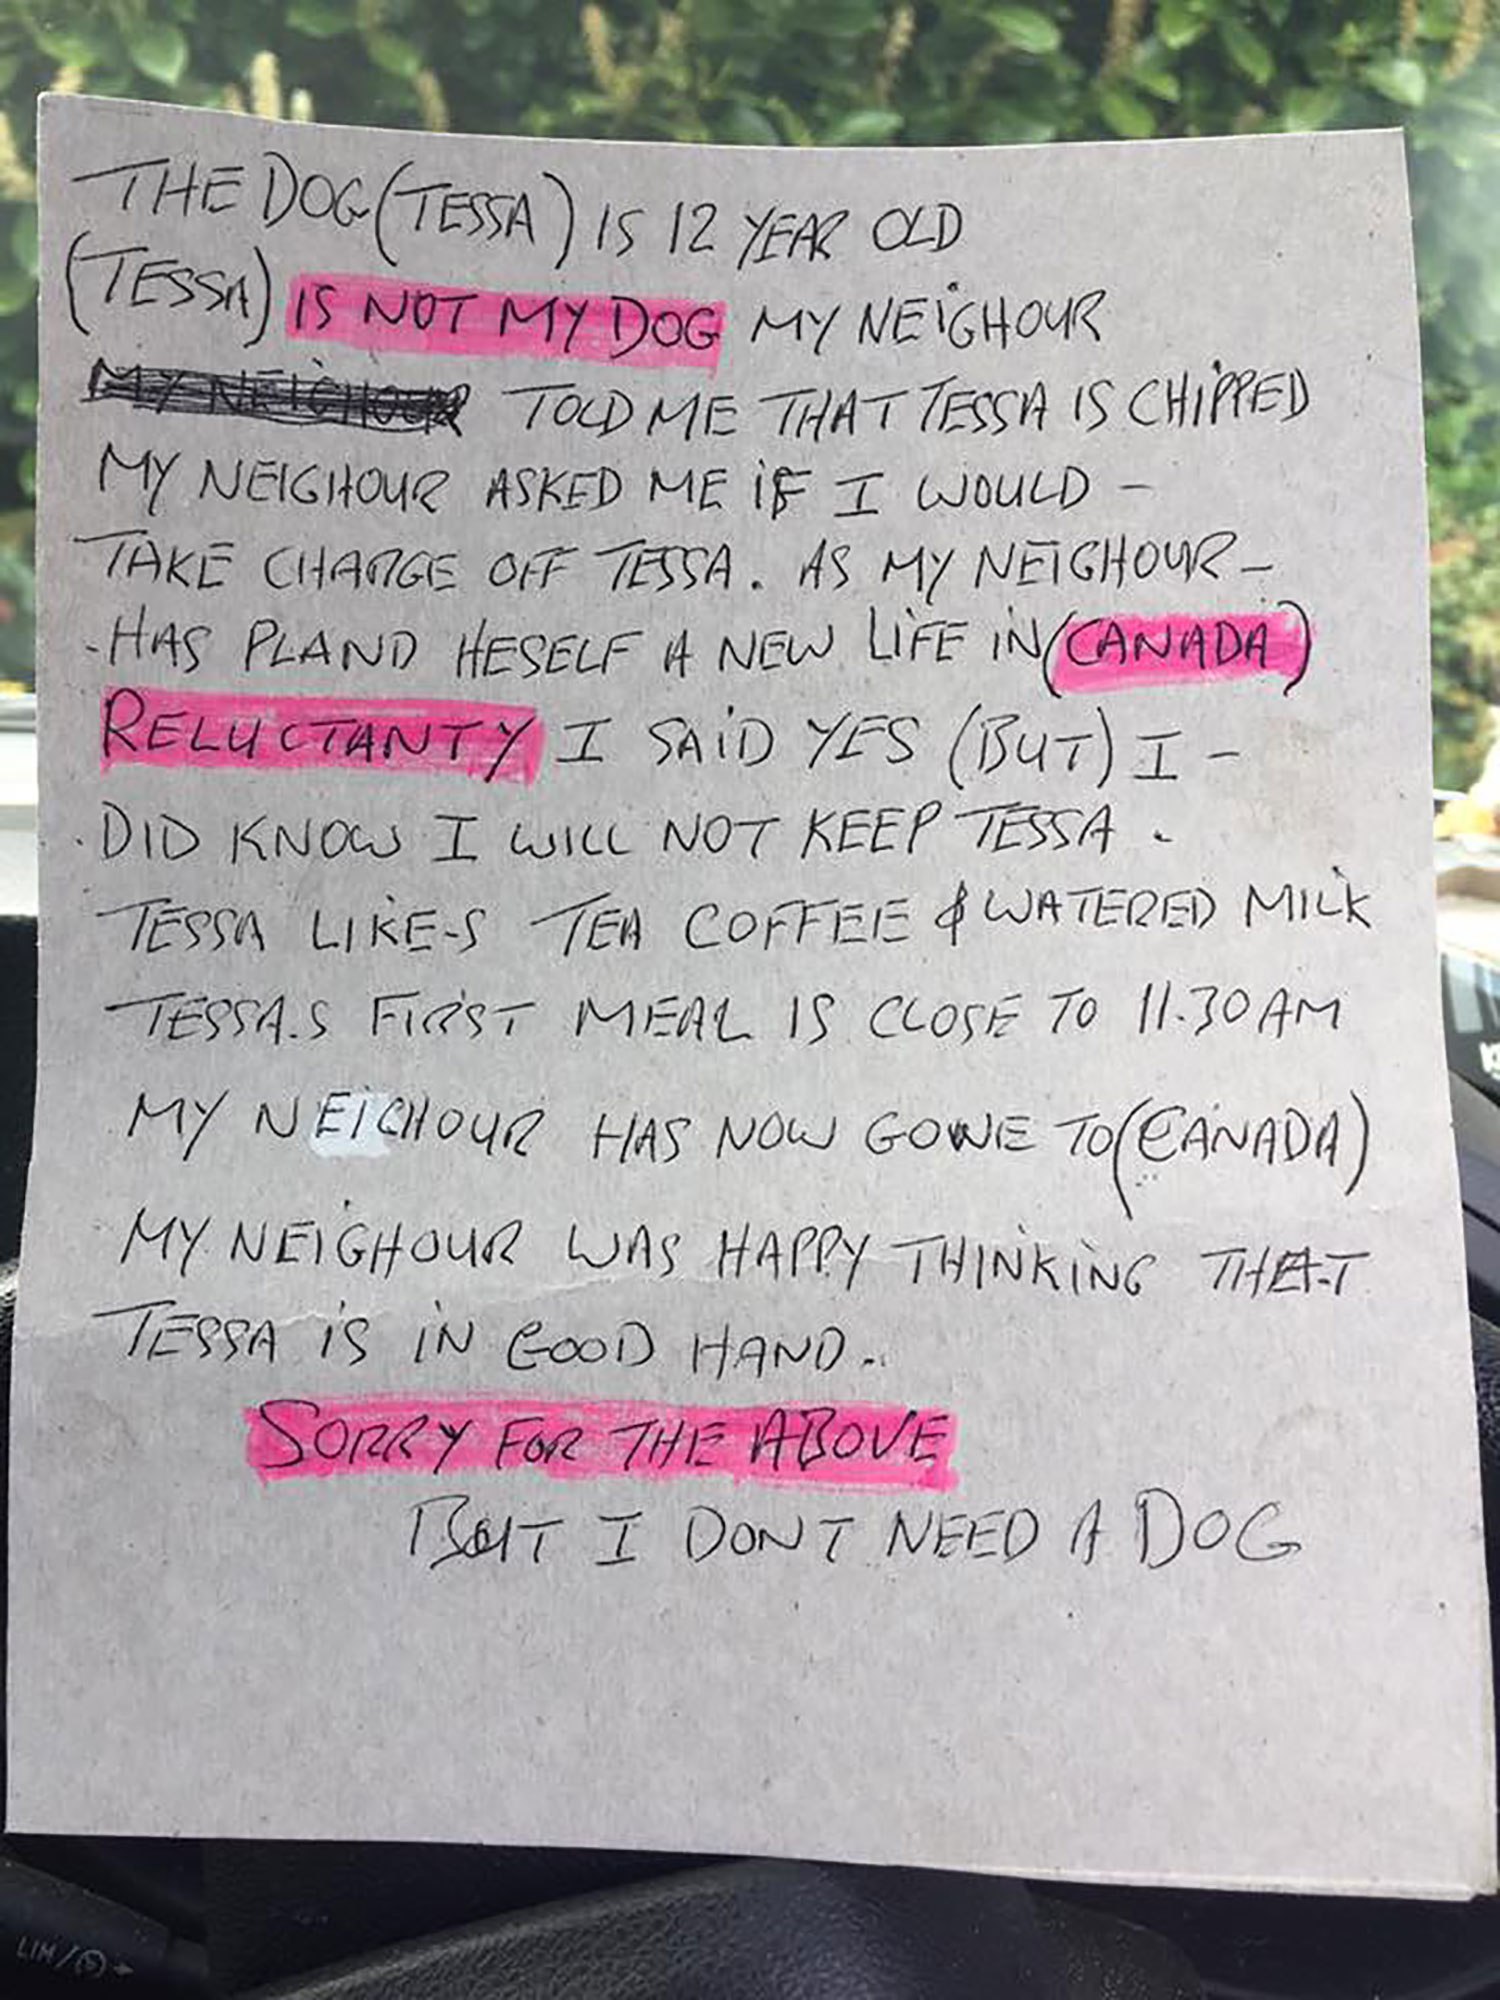 THE DOG (TESSA) IS 12 YEAR OLD
(TESSA) IS NOT MY DOG MY NEIGHOUR
MY NEIGHOUR TOLD ME THAT TESSA IS CHIPPED
MY NEIGHOUR ASKED ME IF I WOULD -
TAKE CHARGE OFF TESSA. AS MY NEIGHOUR -
- HAS PLAND HESELF A NEW LIFE IN (CANADA)
RELUCTANTY I SAID YES (BUT) I -
. DID KNOW I WILL NOT KEEP TESSA .
TESSA LIKE-S TEA COFFEE & WATERED MILK
TESSA.S FIRST MEAL IS CLOSE TO 11.30 AM
MY NEICHOUR HAS NOW GONE TO (CANADA)
MY NEIGHOUR WAS HAPPY THINKING THAT
TESSA IS IN GOOD HAND..
SORRY FOR THE ABOVE
BUT I DONT NEED A DOG
LIM/